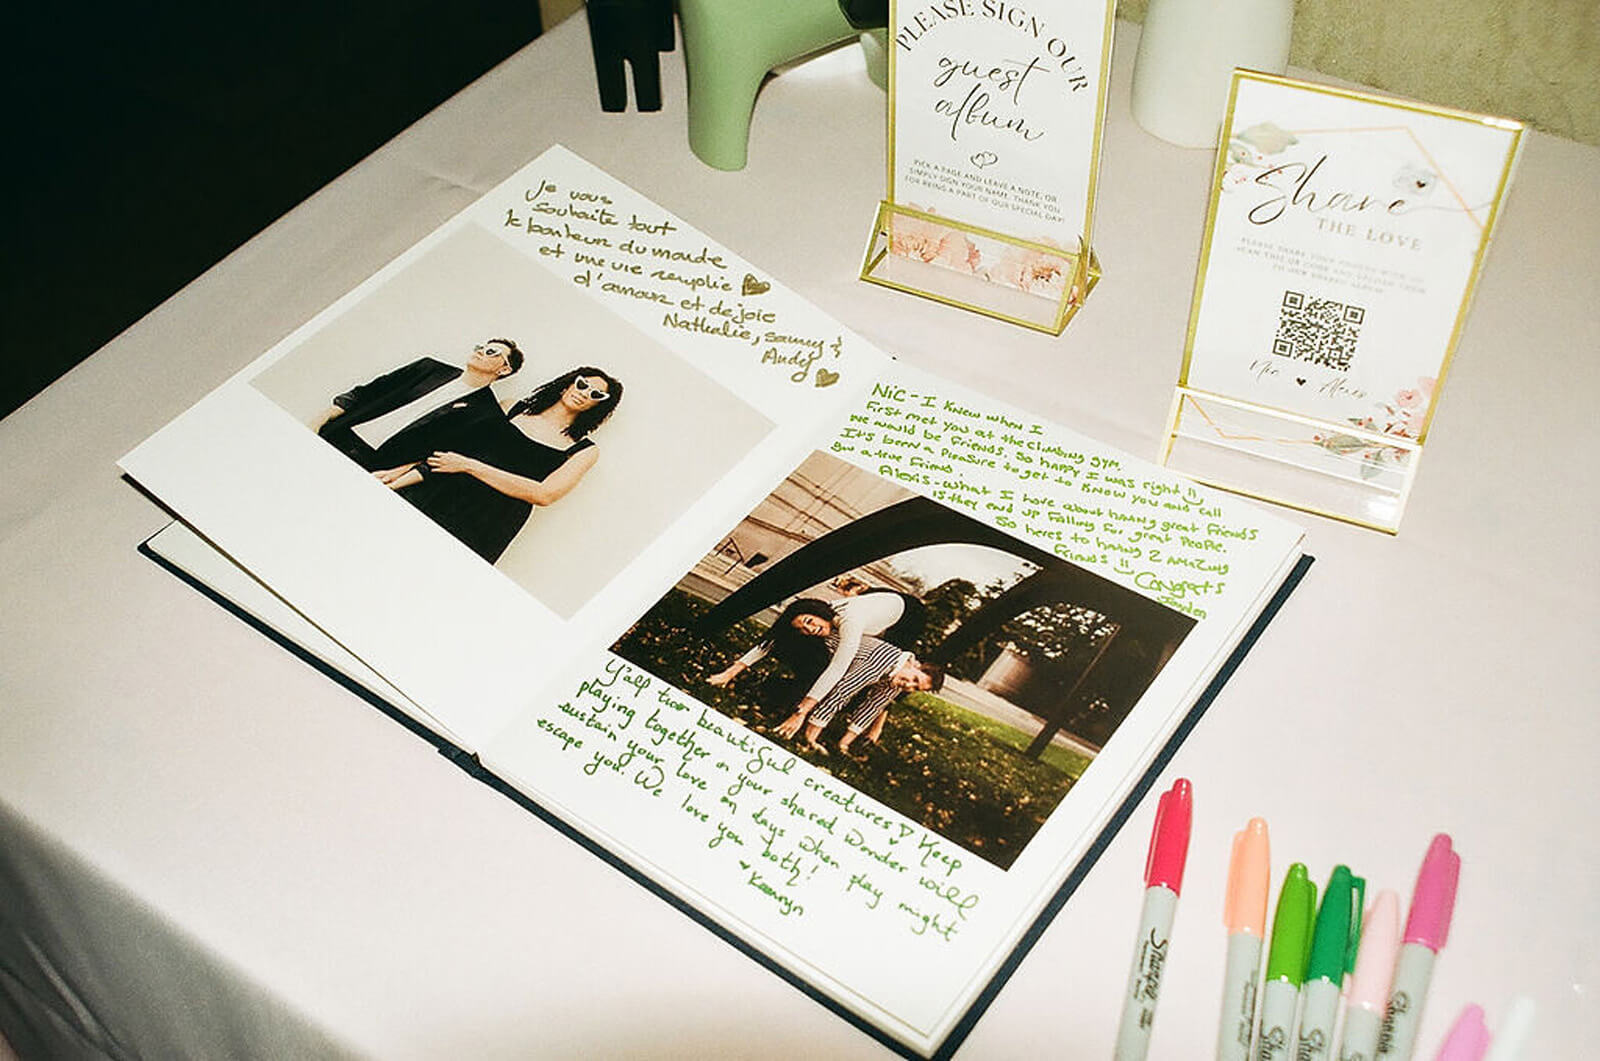 Je vous
souhaite tout
le bonheur du monde
et une vie remplie
d'amour et de joie
Nathalie, Sammy &
Andy
NiC - I Knew when I
First met you at the climbing gym,
we would be friends. So happy I was right
It's been a pleasure to get to know you and call
you a true friend.
Alexis - what I love about having great friends
is they end up falling for great people.
So heres to having 2 amazing
Friends !! Congrats
Jayden
Y'all two beautiful creatures ♡ Keep
playing together in your shared wonder will
sustain your love on days when play might
escape you. We love you both!
PLEASE SIGN OUR
guest
album
PICK A PAGE AND LEAVE A NOTE, OR
SIMPLY SIGN YOUR NAME. THANK YOU
FOR BEING A PART OF OUR SPECIAL DAY!
Share
THE LOVE
PLEASE SHARE YOUR PHOTOS WITH US
SCAN THE QR CODE AND UPLOAD THEM
TO OUR SHARED ALBUM
Nic ♥ Alexis
Sharpie